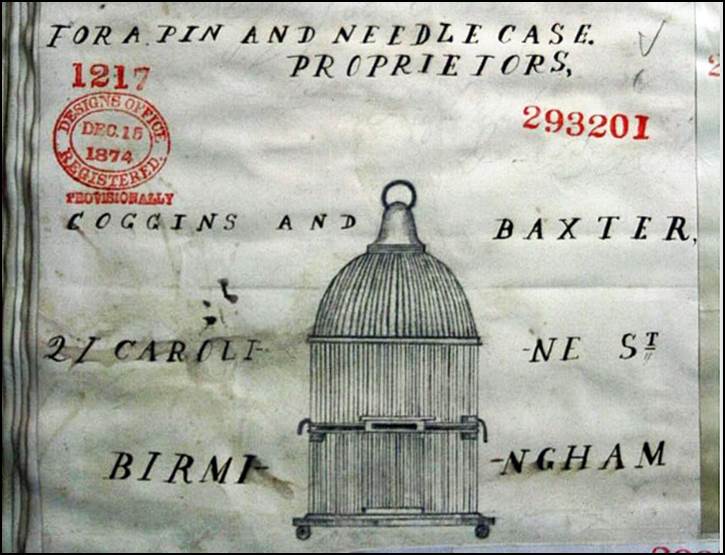 FOR A PIN AND NEEDLE CASE.
PROPRIETORS,
1217
293201
DESIGNS OFFICE
DEC. 15
1874
REGISTERED.
PROVISIONALLY
COGGINS AND BAXTER,
21 CAROLI- -NE ST
BIRMI- -NGHAM